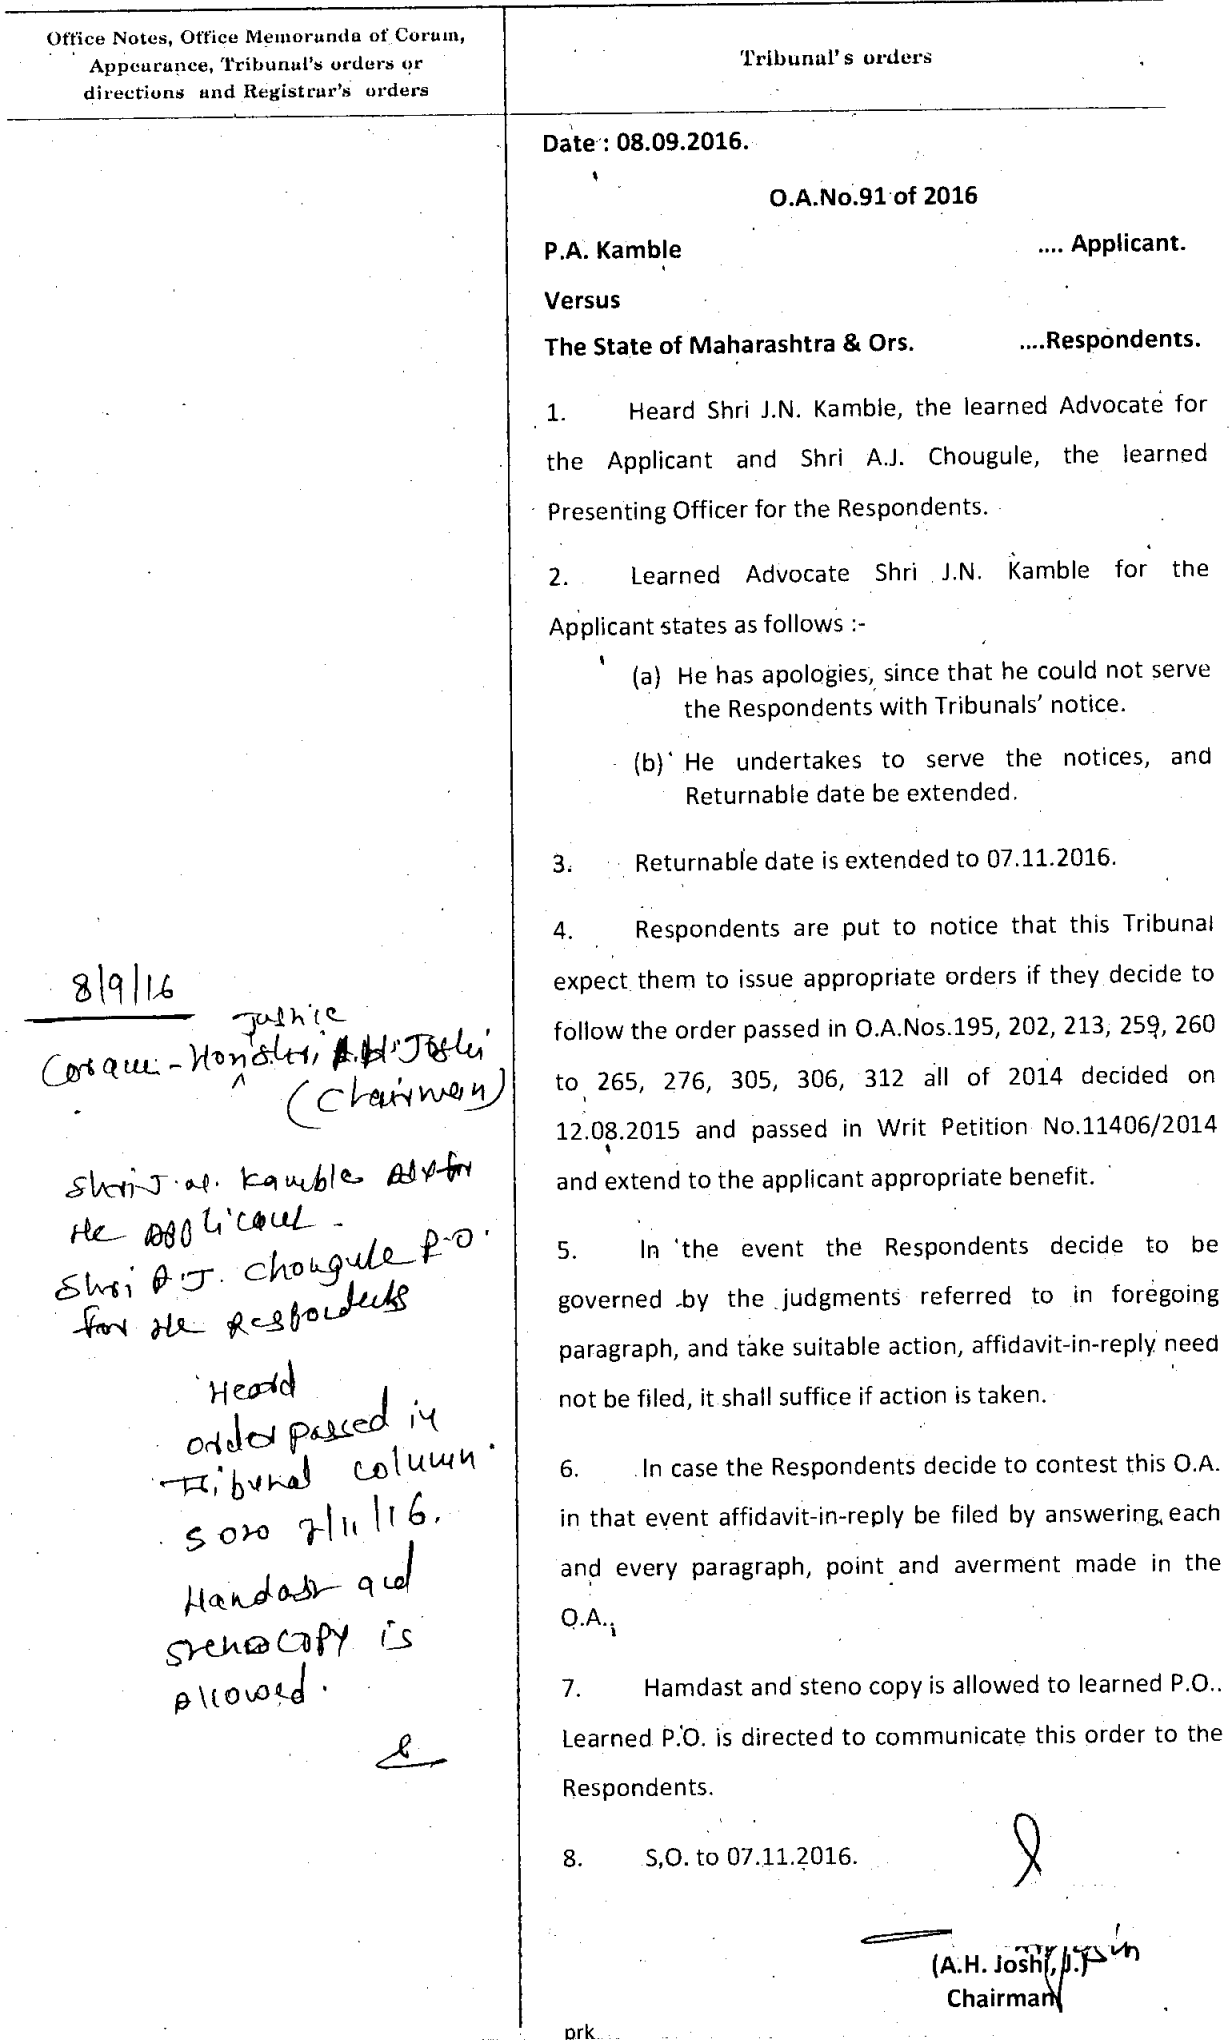 Office Notes, Office Memoranda of Coram,
Appearance, Tribunal's orders or
directions and Registrar's orders
8/9/16
Justice
Coram - Hon'Shri, A.H. Joshi
(Chairman)
Shri J.N. Kamble Adv for
the applicant
Shri A.J. Chougule P.O.
for the Respondents
Heard
order passed in
Tribunal column.
S O to 7/11/16.
Hamdast and
steno copy is
allowed.
Tribunal's orders
Date : 08.09.2016.
O.A.No.91 of 2016
P.A. Kamble .... Applicant.
Versus
The State of Maharashtra & Ors. ....Respondents.
1. Heard Shri J.N. Kamble, the learned Advocate for
the Applicant and Shri A.J. Chougule, the learned
Presenting Officer for the Respondents.
2. Learned Advocate Shri J.N. Kamble for the
Applicant states as follows :-
(a) He has apologies, since that he could not serve
the Respondents with Tribunals' notice.
(b) He undertakes to serve the notices, and
Returnable date be extended.
3. Returnable date is extended to 07.11.2016.
4. Respondents are put to notice that this Tribunal
expect them to issue appropriate orders if they decide to
follow the order passed in O.A.Nos.195, 202, 213, 259, 260
to 265, 276, 305, 306, 312 all of 2014 decided on
12.08.2015 and passed in Writ Petition No.11406/2014
and extend to the applicant appropriate benefit.
5. In the event the Respondents decide to be
governed by the judgments referred to in foregoing
paragraph, and take suitable action, affidavit-in-reply need
not be filed, it shall suffice if action is taken.
6. In case the Respondents decide to contest this O.A.
in that event affidavit-in-reply be filed by answering each
and every paragraph, point and averment made in the
O.A.
7. Hamdast and steno copy is allowed to learned P.O..
Learned P.O. is directed to communicate this order to the
Respondents.
8. S.O. to 07.11.2016.
(A.H. Joshi, J.)
Chairman
prk